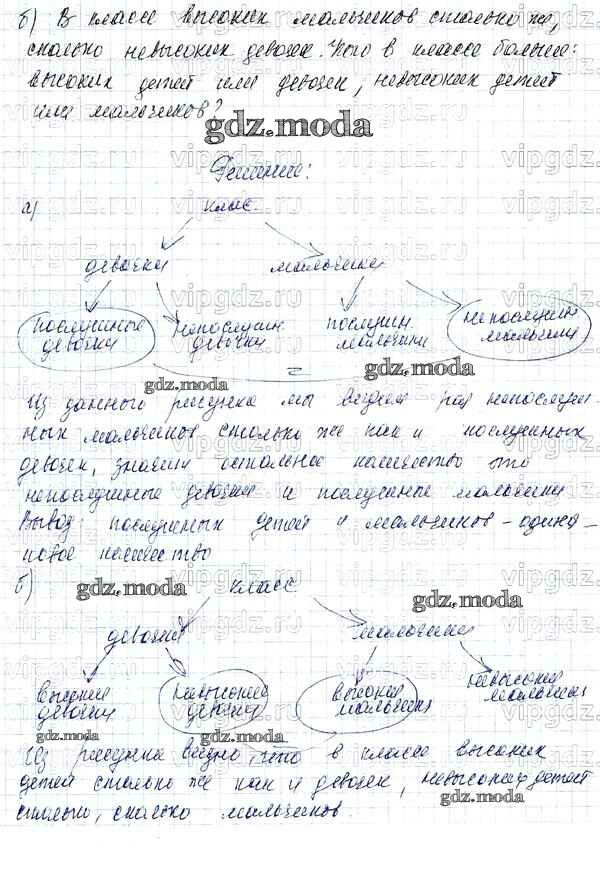 б) В классе высоких мальчиков столько же,
сколько невысоких девочек. Кого в классе больше:
высоких детей или девочек, невысоких детей
или мальчиков?
gdz.moda
Решение:
а) класс
девочки мальчики
послушные девочки непослушн. девочки послушн. мальчики непослушн. мальчики
=
gdz.moda
gdz.moda
Из данного рисунка мы видим раз непослуш
ных мальчиков столько же как и послушных
девочек, значит остальное количество это
непослушные девочки и послушные мальчики
Вывод: послушных детей и мальчиков - одина-
ковое количество
б) класс
gdz.moda
gdz.moda
девочки мальчики
высокие девочки невысокие девочки высокие мальчики невысокие мальчики
gdz.moda
gdz.moda
Из рисунка видно, что в классе высоких
детей столько же как и девочек, невысоких детей
столько, сколько мальчиков.
gdz.moda
vipgdz.ru